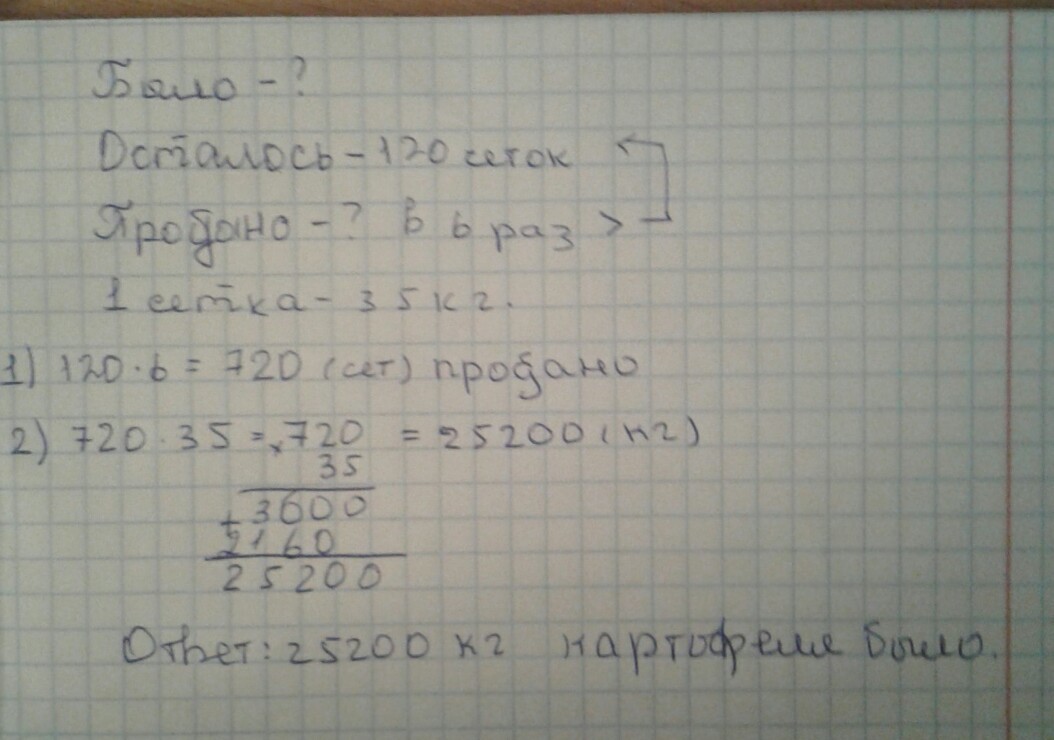 Было - ?
Осталось - 120 сеток
Продано - ? в 6 раз >
1 сетка - 35 кг.
1) 120 · 6 = 720 (сет) продано
2) 720 · 35 = × 720 = 25200 (кг)
35
+ 3600
2160
25200
Ответ: 25200 кг картофеле было.